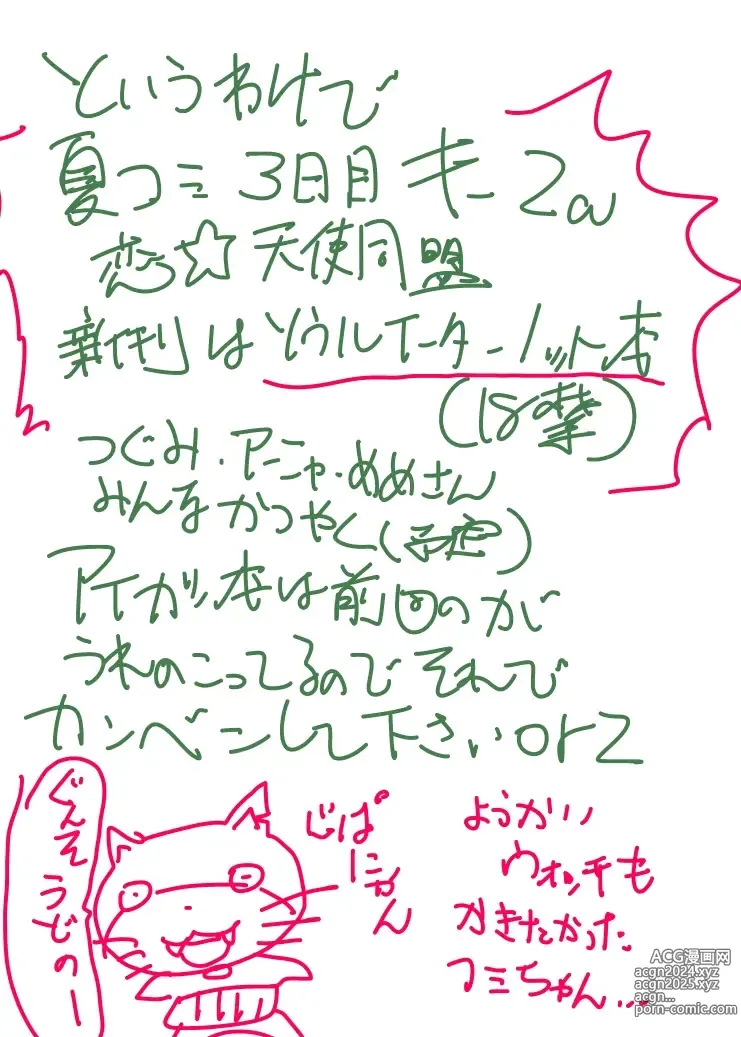 というわけで
夏コミ 3日目 キー2a
恋☆天使同盟
新刊はソウルイーターノット本
(18禁)
つぐみ・アーニャ・めめさん
みんなかつやく(予定)
アイカツ本は前回のが
うれのこってるのでそれで
カンベンして下さいorz
じばにゃん
ようかい
ウォッチも
かきたかった
コミちゃん...
ACG漫画网
acgn2024.xyz
acgn2025.xyz
acgn...
porn-comic.com